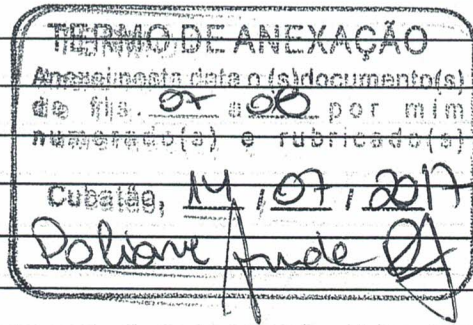 TERMO DE ANEXAÇÃO
Anexei nesta data o (s) documento(s)
de fls. 07 a 08 por mim
numerado(s) e rubricado(s)
Cubatão, 14 / 07 / 2017
Poliane